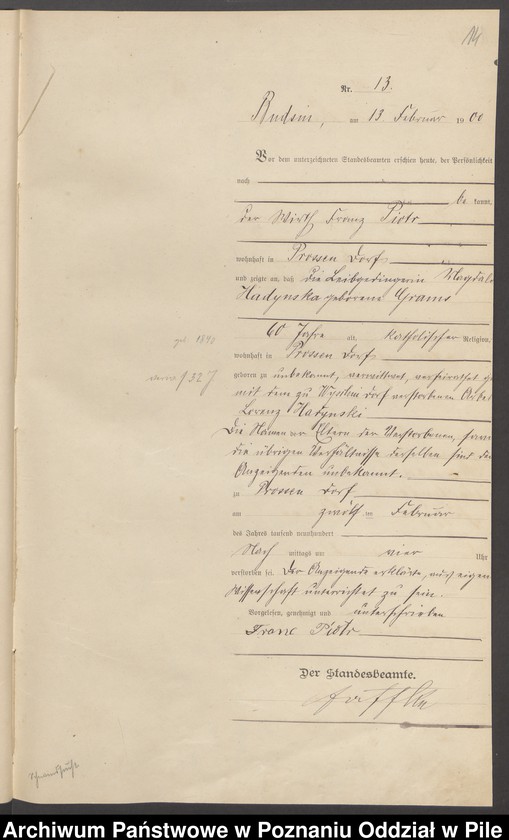 14
Nr. 13.
Budsin, am 13 Februar 1900
Vor dem unterzeichneten Standesbeamten erschien heute, der Persönlichkeit
nach
be kannt,
der Wirth Franz Piotr
wohnhaft in Prossen Dorf
und zeigte an, daß die Leibgedingerin Magdale
Hadynska geborene Grams
60 Jahre alt, katholischer Religion,
wohnhaft in Prossen Dorf
geboren zu unbekannt, verwittwet, verheirathet ge
mit dem zu dorf verstorbenen Arbei
Lorenz Hadynski
Die Namen der Eltern der Verstorbenen, sowie
die übrigen Verhältnisse derselben sind dem
Anzeigenden unbekannt.
zu Prossen Dorf
am zwölften Februar
des Jahres tausend neunhundert
Nach mittags um vier Uhr
verstorben sei. Der Anzeigende erklärte, aus eigener
Wissenschaft unterrichtet zu sein.
Vorgelesen, genehmigt und unterschrieben
Franz Piotr
Der Standesbeamte.
Archiwum Państwowe w Poznaniu Oddział w Pile